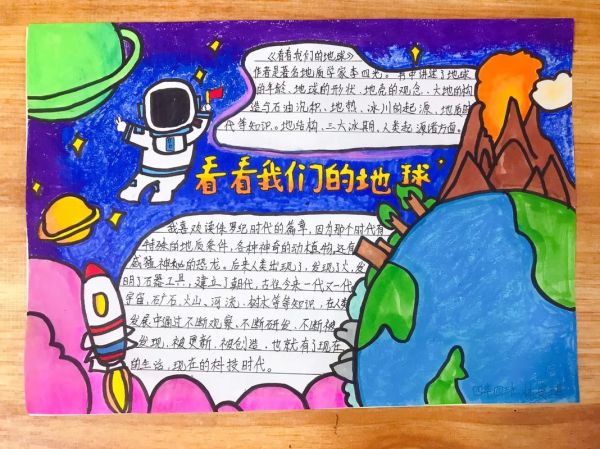 《看看我们的地球》
作者是著名地质学家李四光。书中讲述了地球
的年龄、地球的形状、地壳的观念、大地的构
造与石油沉积、地热、冰川的起源、地质时
代等知识。地结构、三大冰期、人类起源诸方面。
看看我们的地球
我喜欢读侏罗纪时代的篇章,因为那个时代有
特殊的地质条件,各种神奇的动植物,还有
威猛神秘的恐龙。后来人类出现了,发现了火,发
明了石器工具,建立了朝代,古往今来一代又一代
宇宙、矿石、火山、河流、树木等等知识,在人类
发展中通过不断观察、不断研发、不断被
发现,被更新,被创造,也就有了现在
的生活,现在的科技时代。
四年四班